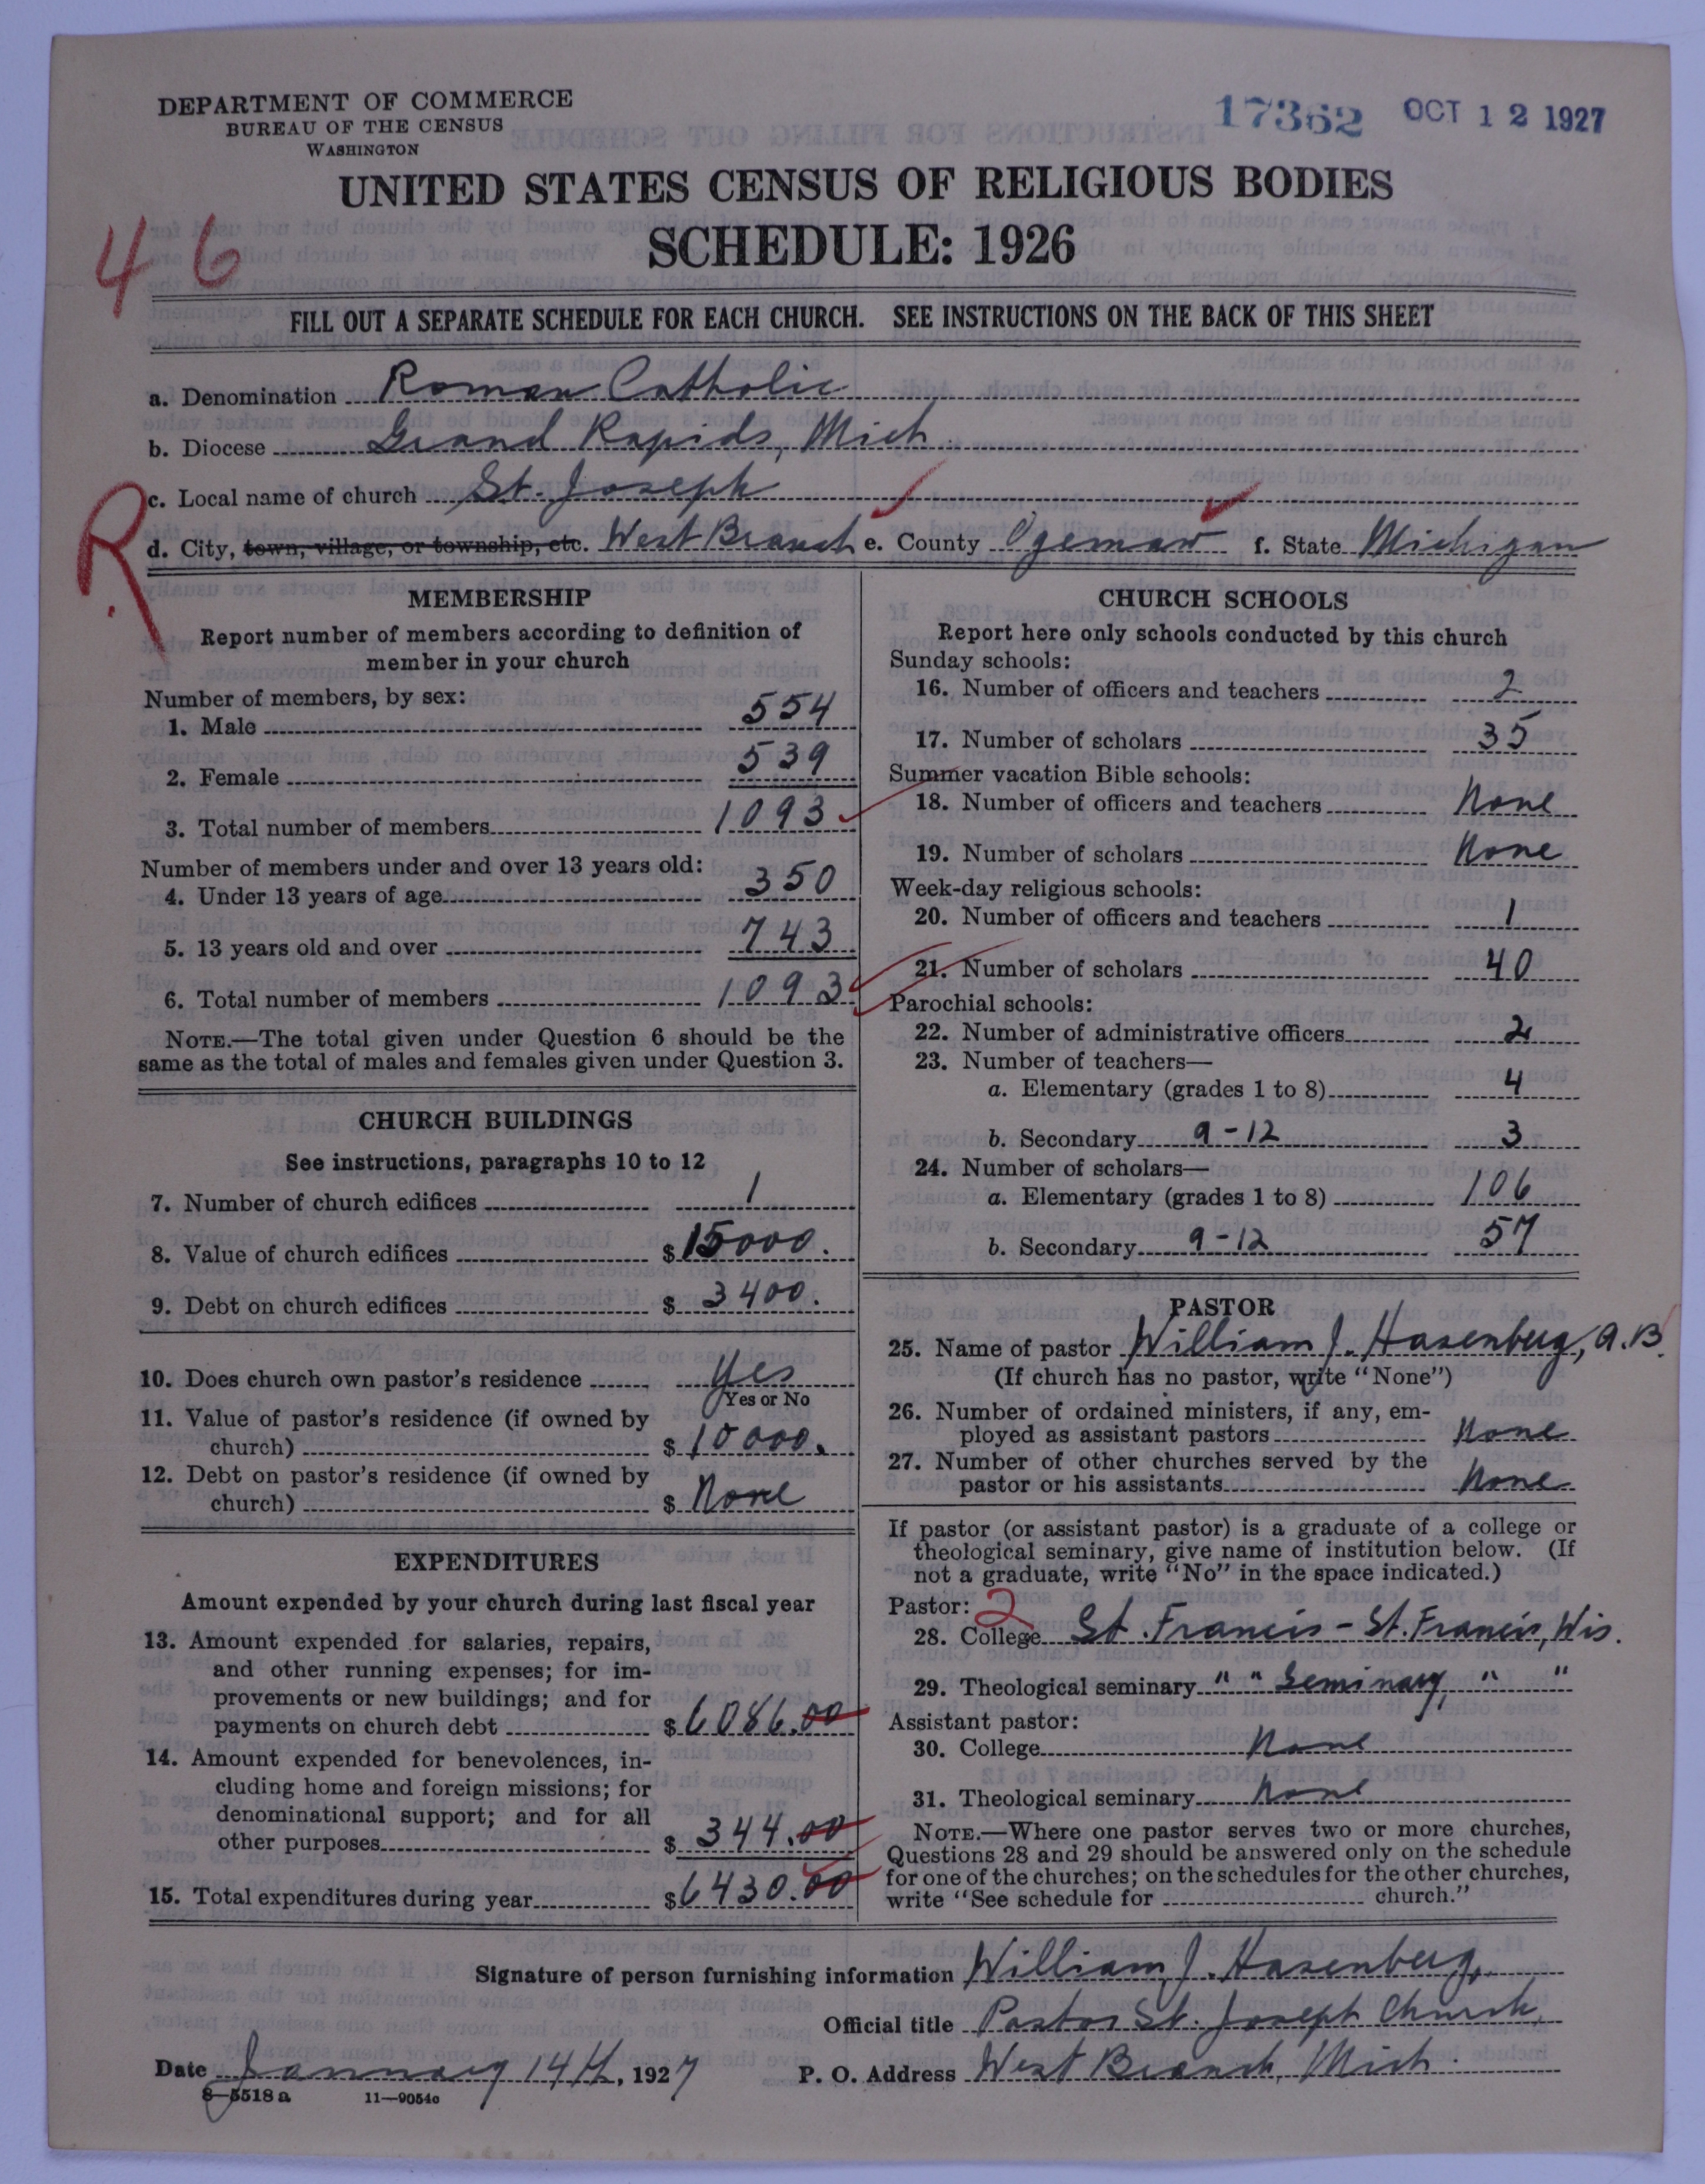 DEPARTMENT OF COMMERCE
BUREAU OF THE CENSUS
WASHINGTON
17362 OCT 12 1927
UNITED STATES CENSUS OF RELIGIOUS BODIES
SCHEDULE: 1926
46
FILL OUT A SEPARATE SCHEDULE FOR EACH CHURCH. SEE INSTRUCTIONS ON THE BACK OF THIS SHEET
a. Denomination Roman Catholic
b. Diocese Grand Rapids, Mich.
c. Local name of church St. Joseph
R
d. City, town, village, or township, etc. West Branch e. County Ogemaw f. State Michigan
MEMBERSHIP
Report number of members according to definition of
member in your church
Number of members, by sex:
1. Male 554
2. Female 539
3. Total number of members 1093
Number of members under and over 13 years old:
4. Under 13 years of age 350
5. 13 years old and over 743
6. Total number of members 1093
NOTE.—The total given under Question 6 should be the
same as the total of males and females given under Question 3.
CHURCH BUILDINGS
See instructions, paragraphs 10 to 12
7. Number of church edifices 1
8. Value of church edifices $ 15000.
9. Debt on church edifices $ 3400.
10. Does church own pastor's residence Yes
Yes or No
11. Value of pastor's residence (if owned by
church) $ 10000.
12. Debt on pastor's residence (if owned by
church) $ None
EXPENDITURES
Amount expended by your church during last fiscal year
13. Amount expended for salaries, repairs,
and other running expenses; for im-
provements or new buildings; and for
payments on church debt $ 6086.00
14. Amount expended for benevolences, in-
cluding home and foreign missions; for
denominational support; and for all
other purposes $ 344.00
15. Total expenditures during year $ 6430.00
CHURCH SCHOOLS
Report here only schools conducted by this church
Sunday schools:
16. Number of officers and teachers 2
17. Number of scholars 35
Summer vacation Bible schools:
18. Number of officers and teachers None
19. Number of scholars None
Week-day religious schools:
20. Number of officers and teachers 1
21. Number of scholars 40
Parochial schools:
22. Number of administrative officers 2
23. Number of teachers—
a. Elementary (grades 1 to 8) 4
b. Secondary 9-12 3
24. Number of scholars—
a. Elementary (grades 1 to 8) 106
b. Secondary 9-12 57
PASTOR
25. Name of pastor William J. Hasenberg, A.B.
(If church has no pastor, write "None")
26. Number of ordained ministers, if any, em-
ployed as assistant pastors None
27. Number of other churches served by the
pastor or his assistants None
If pastor (or assistant pastor) is a graduate of a college or
theological seminary, give name of institution below. (If
not a graduate, write "No" in the space indicated.)
Pastor: 2
28. College St. Francis - St. Francis, Wis.
29. Theological seminary " " Seminary " "
Assistant pastor:
30. College None
31. Theological seminary None
NOTE.—Where one pastor serves two or more churches,
Questions 28 and 29 should be answered only on the schedule
for one of the churches; on the schedules for the other churches,
write "See schedule for church."
Signature of person furnishing information William J. Hasenberg.
Official title Pastor St. Joseph Church,
Date January 14th, 1927 P. O. Address West Branch, Mich.
8-5518 a 11-9054c